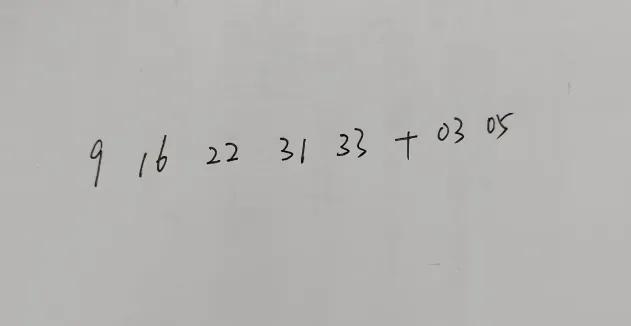 9 16 22 31 33 + 03 05